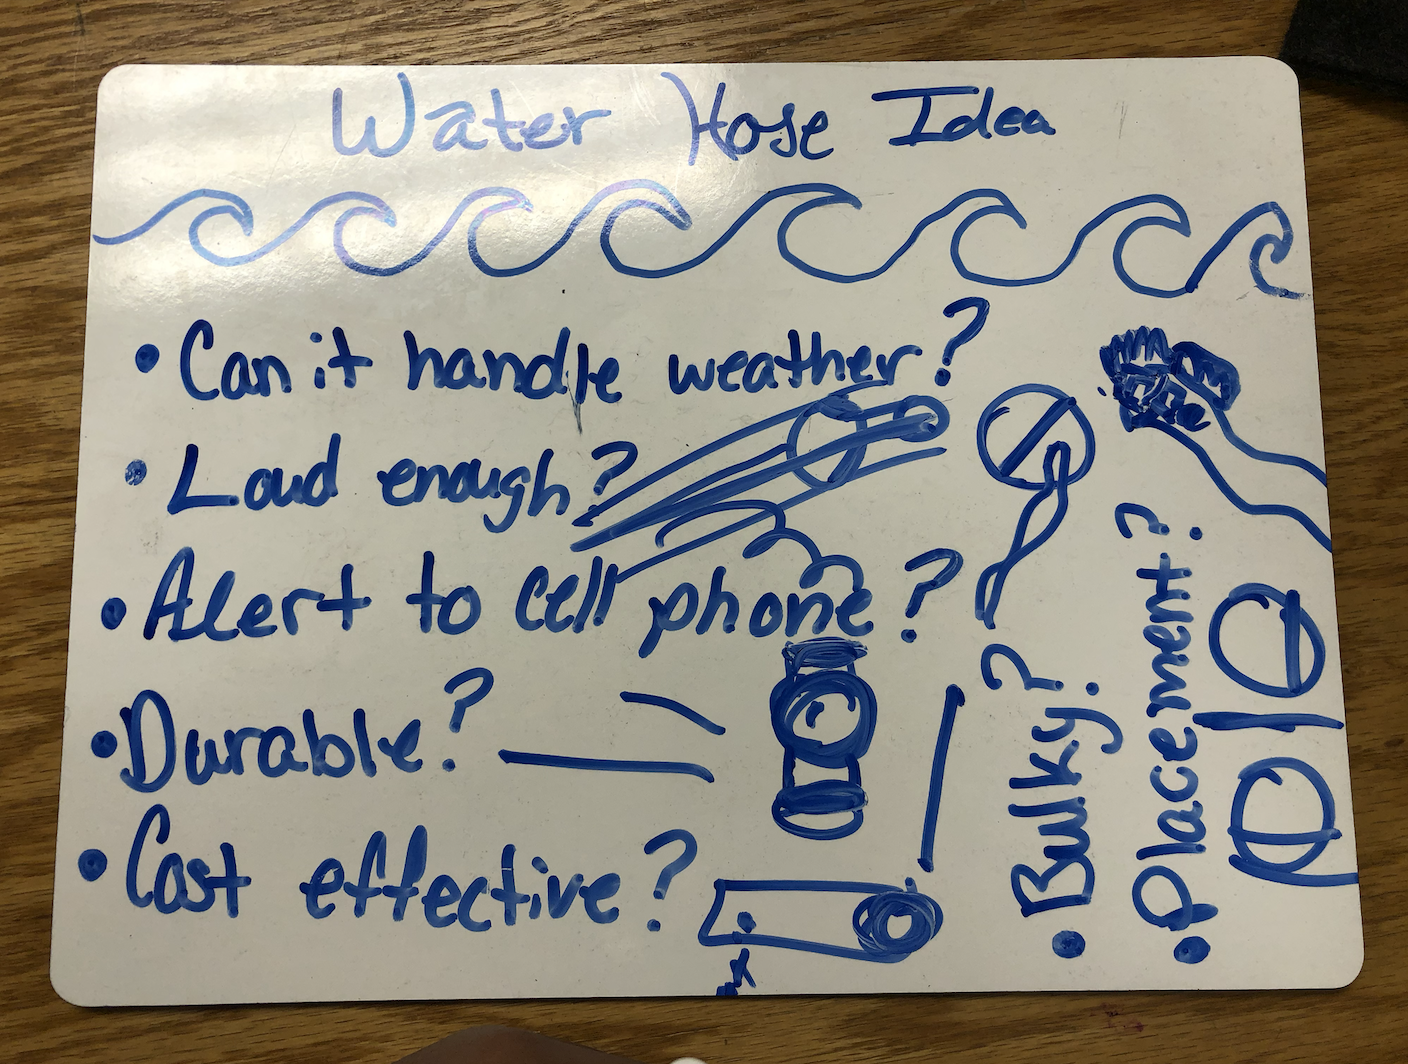 Water Hose Idea
• Can it handle weather?
• Loud enough?
• Alert to cell phone?
• Durable?
• Cost effective?
• Bulky?
• Placement?